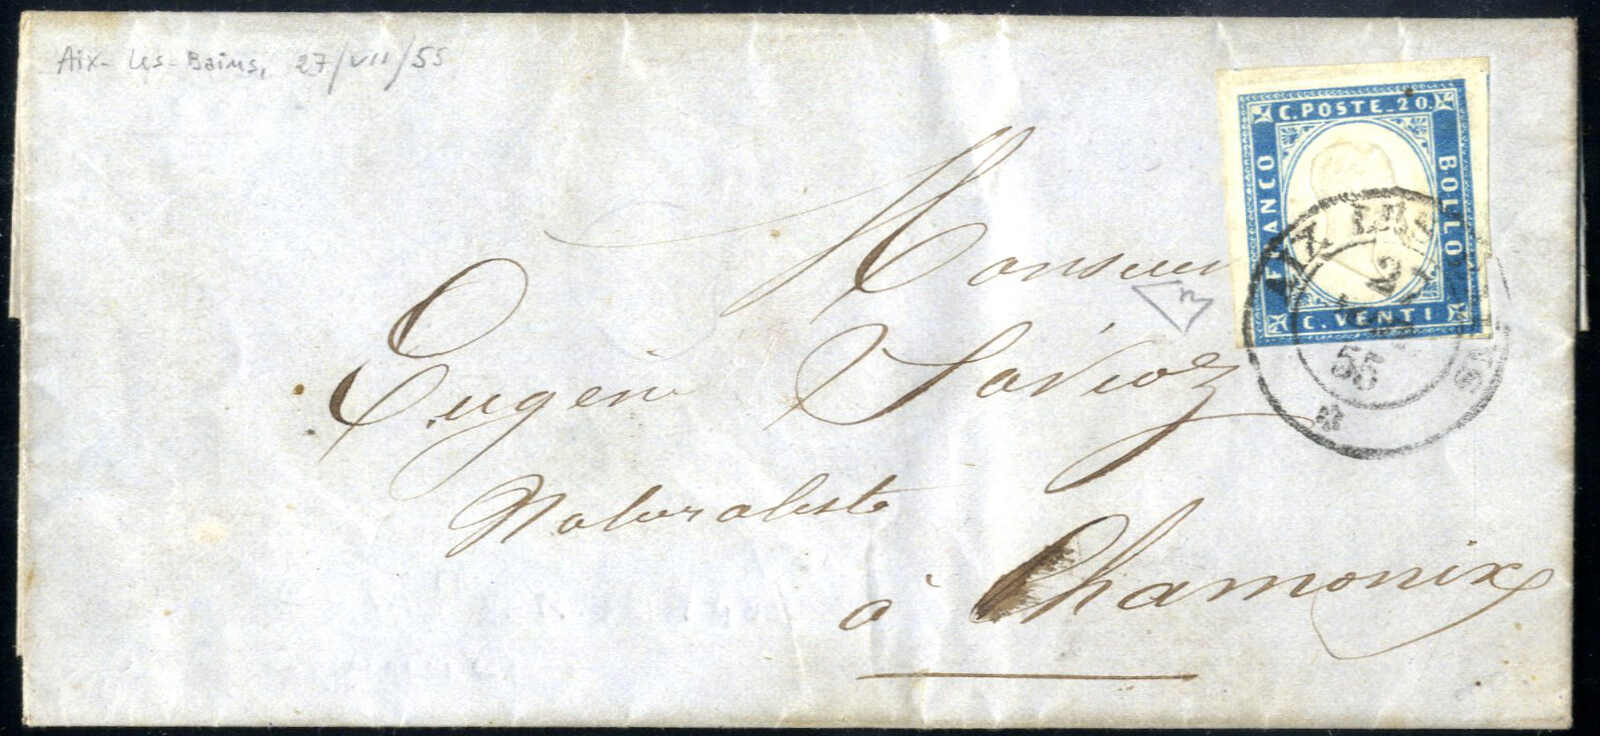 Aix-les-Bains, 27/VII/55
C. POSTE. 20.
FRANCO
BOLLO
C. VENTI
AIX LES BAINS
55
Monsieur
Eugène Savioz
Naturaliste
à Chamonix